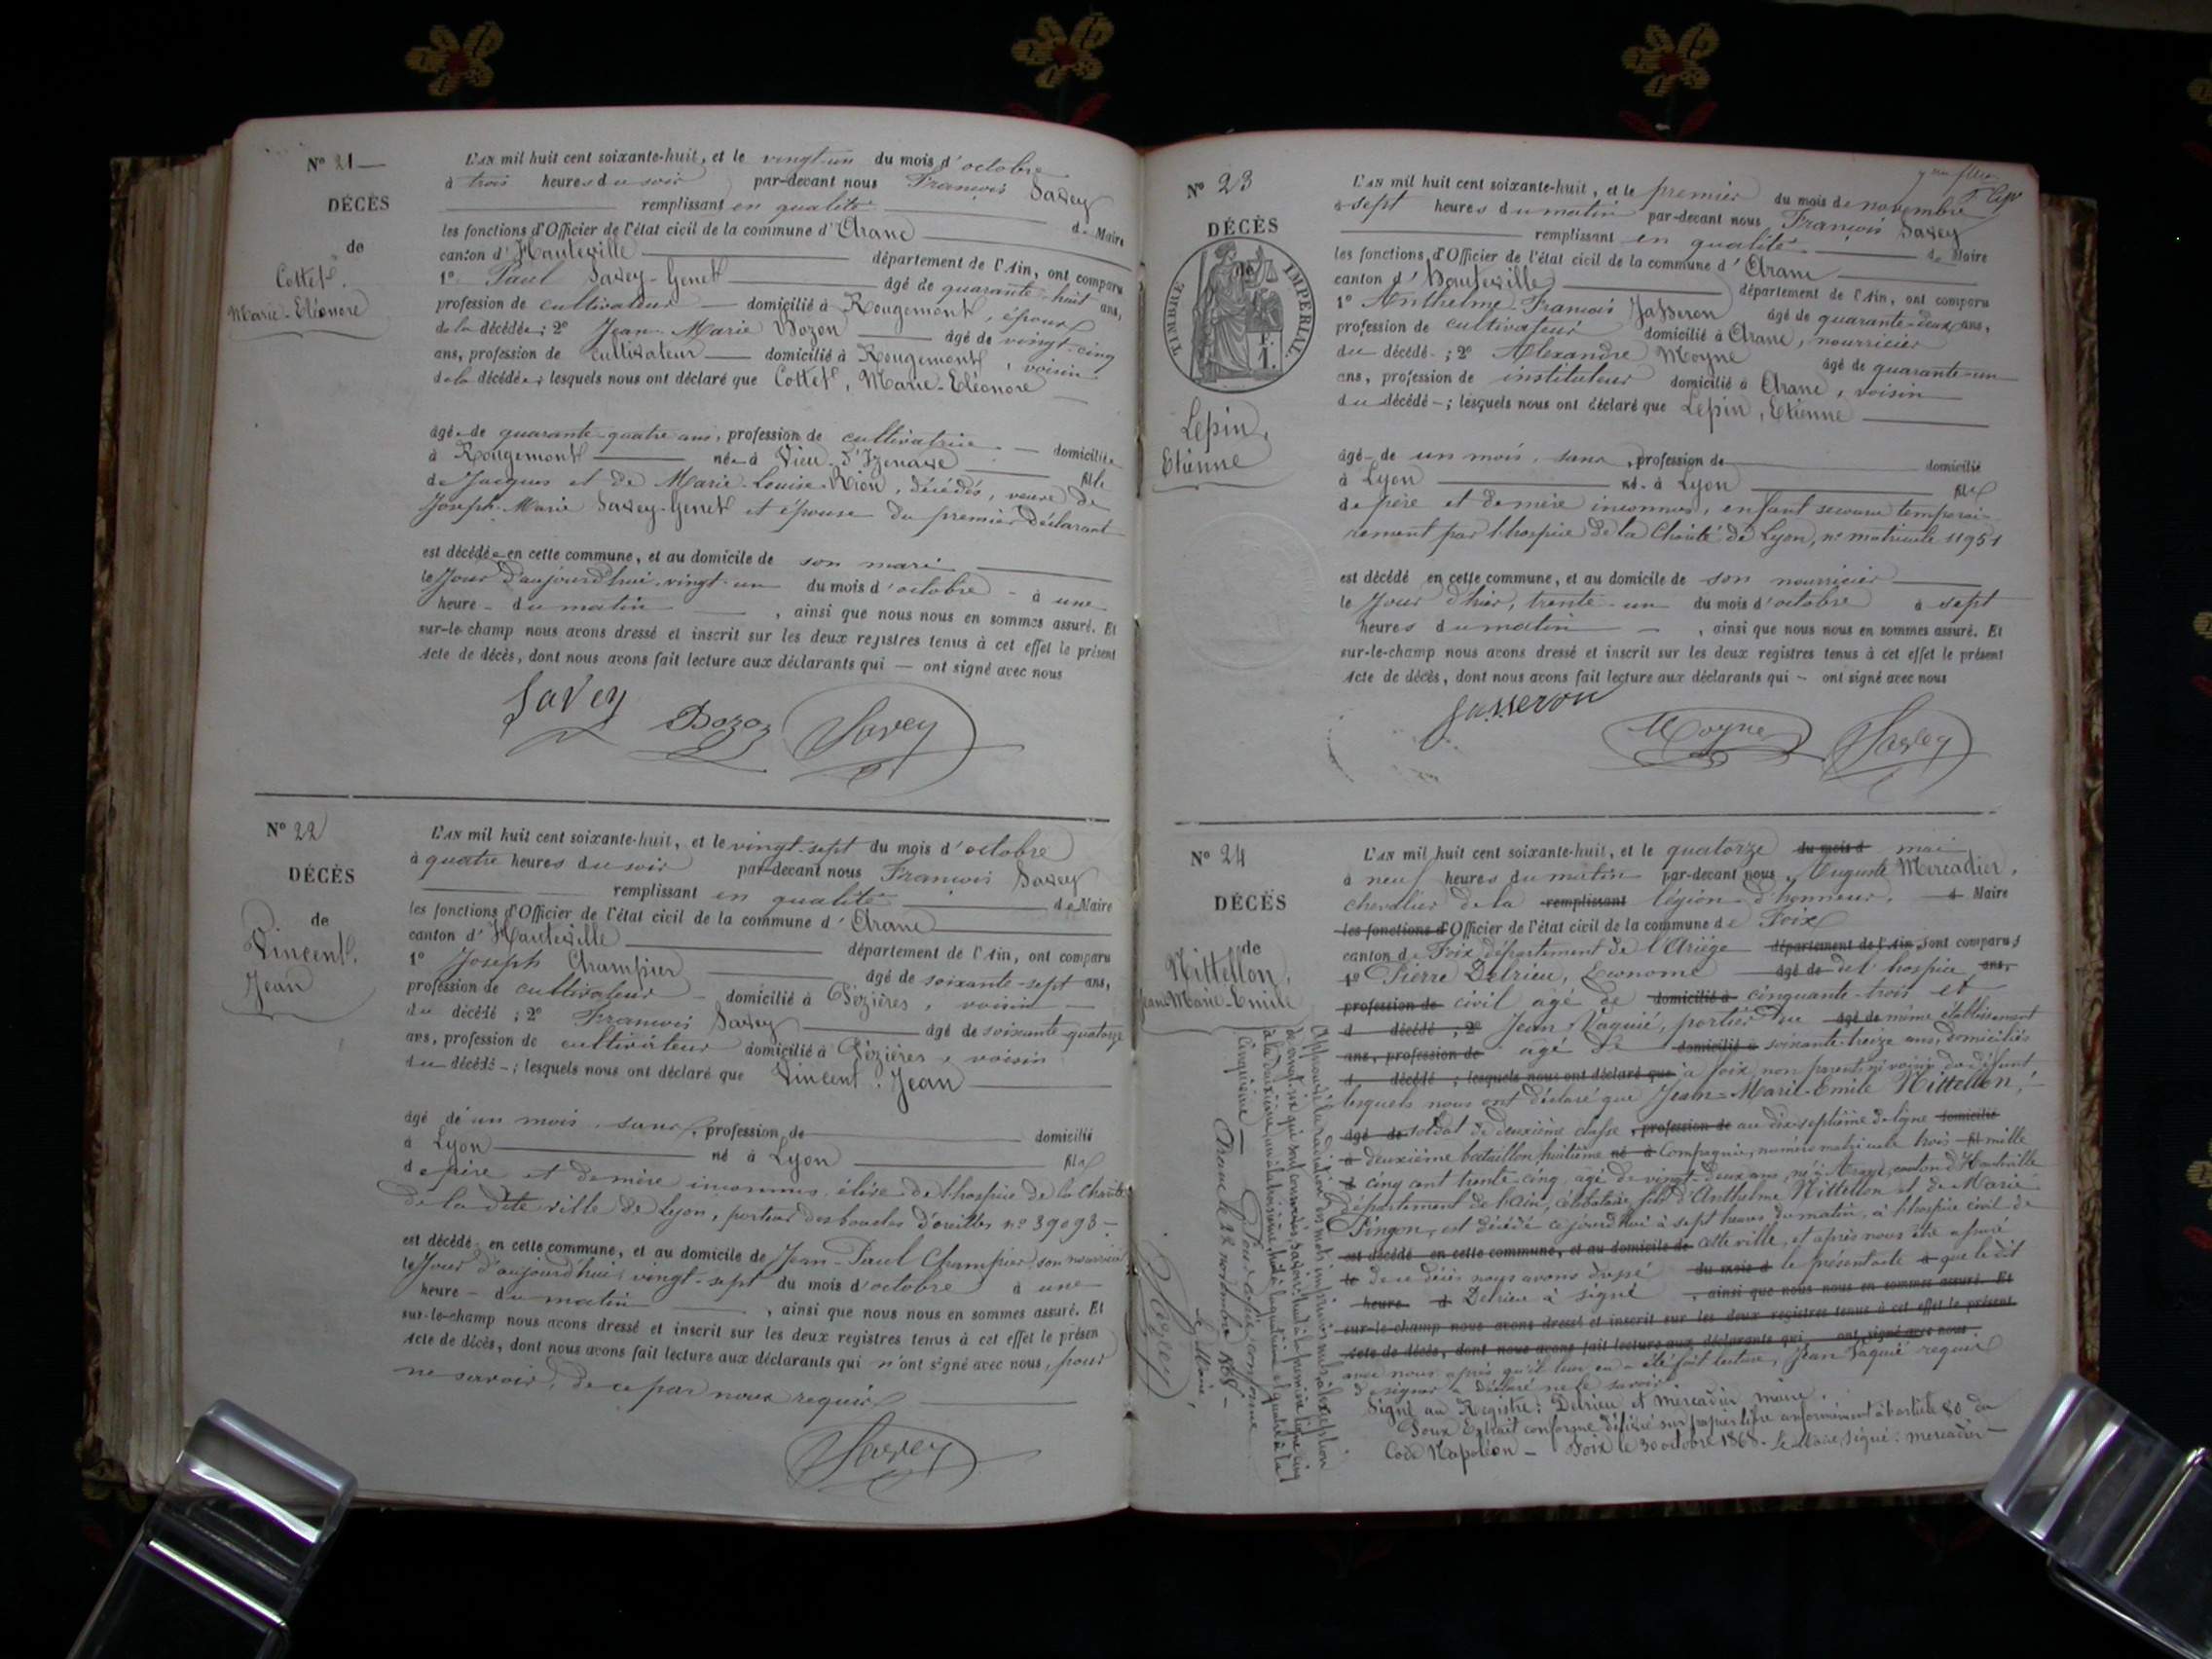 N° 21
DÉCÈS
de
Cottet,
Marie-Eléonore
L'AN mil huit cent soixante-huit, et le vingt-un du mois d'octobre
à trois heures du soir par-devant nous François Savey
remplissant en qualité de Maire
les fonctions d'Officier de l'état civil de la commune d'Aranc
canton d'Hauteville département de l'Ain, ont comparu
1° Paul Savey-Genet âgé de quarante-huit ans,
profession de cultivateur domicilié à Rougemont, époux
de la décédée; 2° Jean-Marie Bozon âgé de vingt-cinq
ans, profession de cultivateur domicilié à Rougemont, voisin
de la décédée; lesquels nous ont déclaré que Cottet, Marie-Eléonore
âgée de quarante-quatre ans, profession de cultivatrice domiciliée
à Rougemont née à Vieu-d'Izenave fille
de Jacques et de Marie-Louise Rion, décédés, veuve de
Joseph-Marie Savey-Genet et épouse du premier déclarant
est décédée en cette commune, et au domicile de son mari
le jour d'aujourd'hui, vingt-un du mois d'octobre à une
heure du matin, ainsi que nous nous en sommes assuré. Et
sur-le-champ nous avons dressé et inscrit sur les deux registres tenus à cet effet le présent
Acte de décès, dont nous avons fait lecture aux déclarants qui — ont signé avec nous
Savey Bozon Savey
N° 22
DÉCÈS
de
Vincent,
Jean
L'AN mil huit cent soixante-huit, et le vingt-sept du mois d'octobre
à quatre heures du soir par-devant nous François Savey
remplissant en qualité de Maire
les fonctions d'Officier de l'état civil de la commune d'Aranc
canton d'Hauteville département de l'Ain, ont comparu
1° Joseph Champier âgé de soixante-sept ans,
profession de cultivateur domicilié à Pézières, voisin
du décédé; 2° François Savey âgé de soixante-quatorze
ans, profession de cultivateur domicilié à Pézières, voisin
du décédé; lesquels nous ont déclaré que Vincent, Jean
âgé d'un mois, sans profession de domicilié
à Lyon né à Lyon fils
de père et de mère inconnus, élève de l'hospice de la Charité
de la dite ville de Lyon, porteur des boucles d'oreilles n° 39093
est décédé en cette commune, et au domicile de Jean-Paul Champier, son nourricier
le jour d'aujourd'hui, vingt-sept du mois d'octobre à une
heure du matin, ainsi que nous nous en sommes assuré. Et
sur-le-champ nous avons dressé et inscrit sur les deux registres tenus à cet effet le présen
Acte de décès, dont nous avons fait lecture aux déclarants qui n'ont signé avec nous, pour
ne savoir, de ce par nous requis
Savey
N° 23
DÉCÈS
de
TIMBRE IMPÉRIAL
1 F.
Lepin,
Etienne
L'AN mil huit cent soixante-huit, et le premier du mois de novembre
à sept heures du matin par-devant nous François Savey
remplissant en qualité de Maire
les fonctions d'Officier de l'état civil de la commune d'Aranc
canton d'Hauteville département de l'Ain, ont comparu
1° Anthelme-François Jasseron âgé de quarante-deux ans,
profession de cultivateur domicilié à Aranc, nourricier
du décédé; 2° Alexandre Moyne âgé de quarante-un
ans, profession de instituteur domicilié à Aranc, voisin
du décédé; lesquels nous ont déclaré que Lepin, Etienne
âgé de un mois, sans profession de domicilié
à Lyon né à Lyon fils
de père et de mère inconnus, enfant secouru temporai-
rement par l'hospice de la Charité de Lyon, n° matricule 11951
est décédé en cette commune, et au domicile de son nourricier
le jour d'hier, trente-un du mois d'octobre à sept
heures du matin, ainsi que nous nous en sommes assuré. Et
sur-le-champ nous avons dressé et inscrit sur les deux registres tenus à cet effet le présent
Acte de décès, dont nous avons fait lecture aux déclarants qui — ont signé avec nous
Jasseron Moyne Savey
N° 24
DÉCÈS
de
Nittellon,
Jean-Marie-Emile
L'AN mil huit cent soixante-huit, et le quatorze du mois d mai
à neuf heures du matin par-devant nous Auguste Mercadier,
chevalier de la remplissant légion d'honneur, d Maire
les fonctions d'Officier de l'état civil de la commune de Foix
canton de Foix, département de l'Ariège département de l'Ain sont comparus
1° Pierre Delrieu, Econome âgé de de l'hospice ans,
profession de civil agé de domicilié à cinquante-trois et
d décédé; 2° Jean Vaquié, portier du âgé de même établissement
ans, profession de agé de domicilié à soixante-treize ans, domiciliés
d décédé; lesquels nous ont déclaré que à foix, non parents ni voisins du défunt
lesquels nous ont déclaré que Jean-Marie-Emile Nittellon,
âgé de soldat de deuxième classe, profession de au dix-septième de ligne domicilié
à deuxième bataillon, huitième né à Compagnie, numéro matricule trois fil mille
d cinq cent trente-cinq, agé de vingt-deux ans, né à Aranc, canton d'Hauteville
département de l'Ain, célibataire, fils d'Anthelme Nittellon et de Marie
Pingon, est décédé ce jourd'hui à sept heures du matin, à l'hospice civil de
est décédé en cette commune, et au domicile de cette ville, et après nous être assuré
le de ce décès nous avons dressé du mois d le présent acte à que le dit
heure d Delrieu à signé, ainsi que nous nous en sommes assuré. Et
sur-le-champ nous avons dressé et inscrit sur les deux registres tenus à cet effet le présent
Acte de décès, dont nous avons fait lecture aux déclarants qui ont signé avec nous.
avec nous après qu'il leur en a été fait lecture, Jean Vaquié requis
de signer a déclaré ne le savoir.
Signé au Registre: Delrieu et Mercadier maire.
Pour Extrait conforme délivré sur papier libre conformément à l'article 80 du
Code Napoléon — Foix le 30 octobre 1868. Le Maire, signé: mercadier
Approuvé la radiation des mots imprimés nuls, à l'exception
cinquième
Pour copie conforme
Aranc le 22 novembre 1868
Le Maire,
Savey